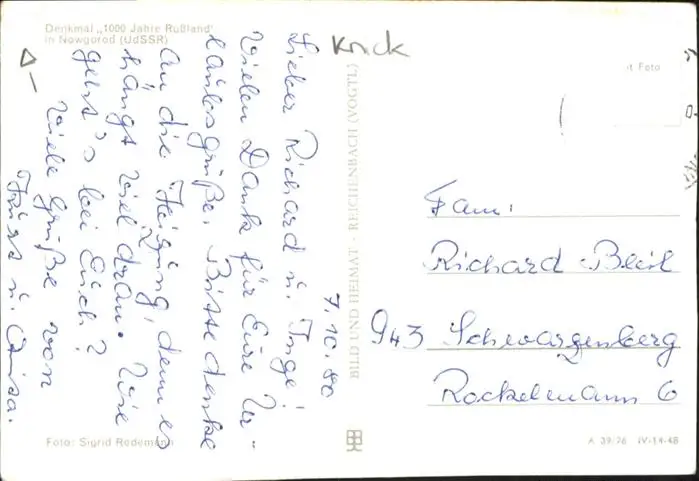 Denkmal „1000 Jahre Rußland"
in Nowgorod (UdSSR)
Knick
t Foto
7.10.80
Lieber Richard u. Inge!
Vielen Dank für Eure Ur-
laubsgrüße. Bitte denke
an die Heizung, denn es
hängt viel dran. Wie
geht's bei Euch?
Viele Grüße von
u.
BILD UND HEIMAT · REICHENBACH (VOGTL)
Fam:
Richard
943 Schwarzenberg
Rockelmann 6
Foto: Sigrid Redemann
A 39/76 IV-14-48